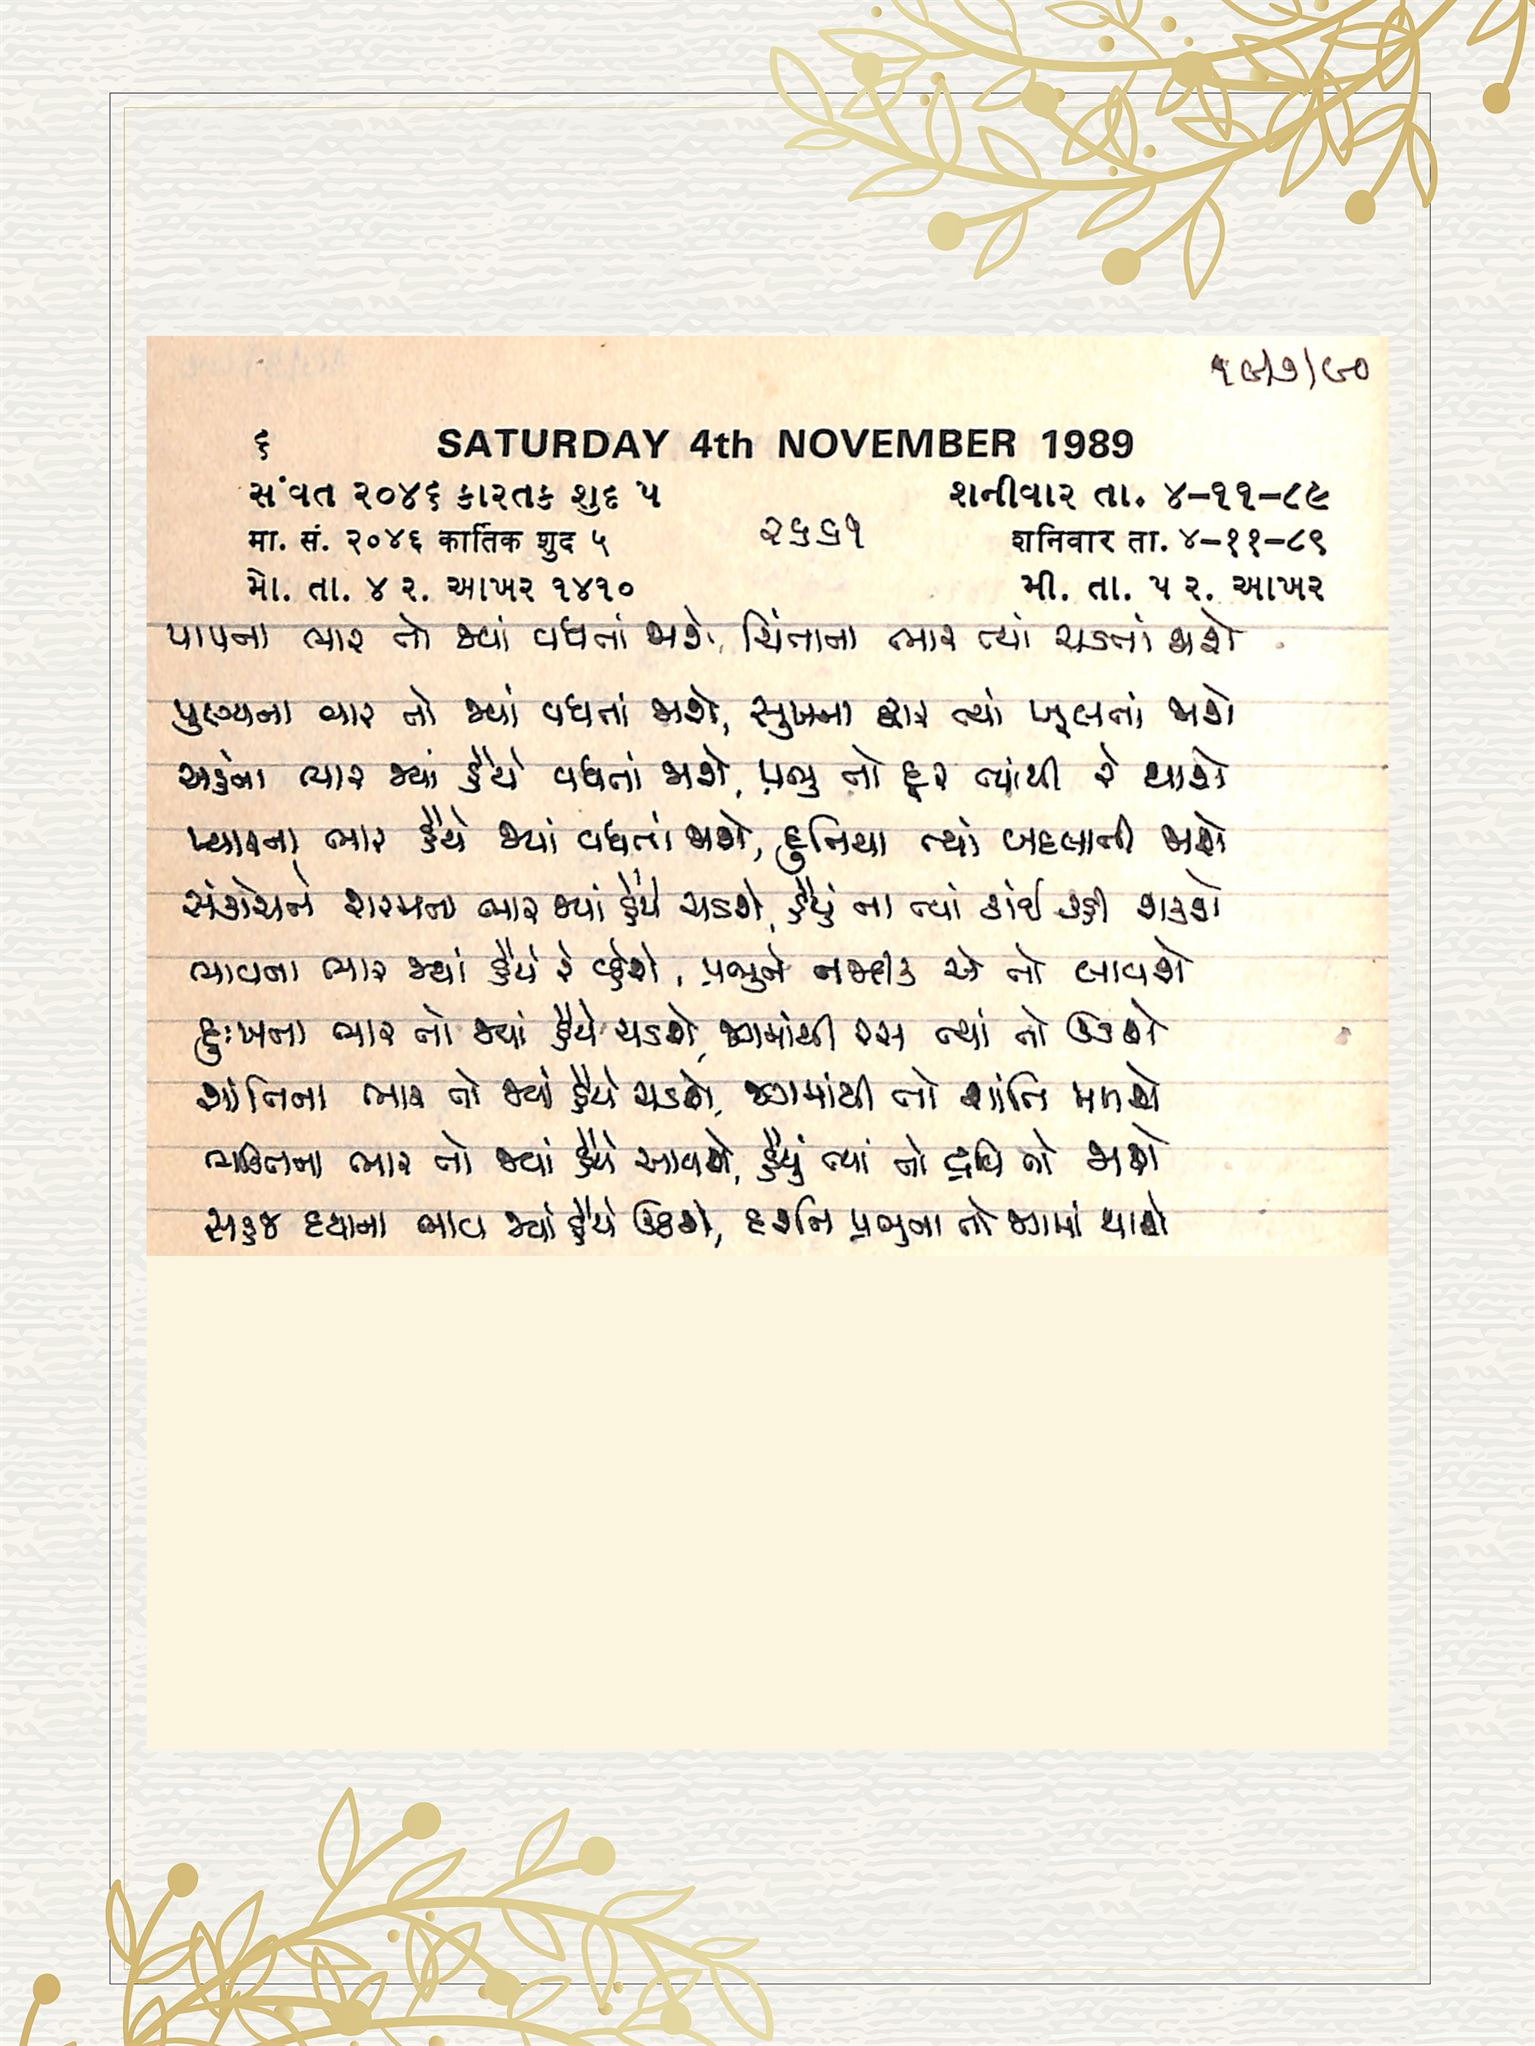 ૧૯/૭/૯૦
૬ SATURDAY 4th NOVEMBER 1989
સંવત ૨૦૪૬ કારતક શુદ ૫ શનીવાર તા. ૪-૧૧-૮૯
मा. सं. २०४६ कार्तिक शुद ५ ૨૬૬૧ शनिवार ता. ४-११-८९
મો. તા. ૪ ર. આખર ૧૪૧૦ મી. તા. ૫ ર. આખર
પાપના ભાર તો જ્યાં વધતાં જાશે, ચિંતાના ભાર ત્યાં ચડતાં જાશે
પુણ્યના ભાર તો જ્યાં વધતાં જાશે, સુખના દ્વાર ત્યાં ખૂલતાં જાશે
અહંના ભાર જ્યાં હૈયે વધતાં જાશે, પ્રભુ તો દૂર ત્યાંથી રે થાશે
પ્યારના ભાર હૈયે જ્યાં વધતાં જાશે, દુનિયા ત્યાં બદલાતી જાશે
સંકોચને શરમના ભાર જ્યાં હૈયે ચડશે, હૈયું ના ત્યાં કાંઈ કહી શકશે
ભાવના ભાર જ્યાં હૈયે રે વ્હેશે, પ્રભુને નજદીક એ તો લાવશે
દુઃખના ભાર તો જ્યાં હૈયે ચડશે, જગમાંથી રસ ત્યાં તો ઊડશે
શાંતિના ભાર તો જ્યાં હૈયે ચડશે, જગમાંથી તો શાંતિ મળશે
ભક્તિના ભાર તો જ્યાં હૈયે આવશે, હૈયું ત્યાં તો દ્રવિ તો જાશે
સહજ દયાના ભાવ જ્યાં હૈયે ઊઠશે, દર્શન પ્રભુના તો જગમાં થાશે